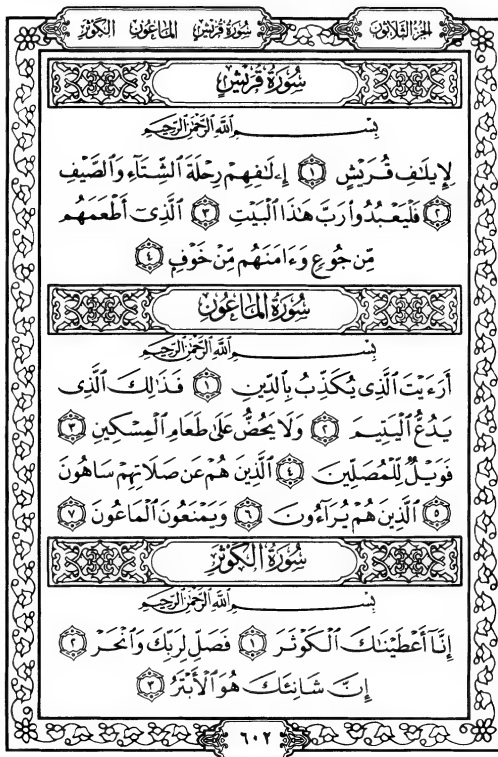 سُورَةُ قُرَيْشٍ الْمَاعُونَ الْكَوْثَرَ الجُزْءُ الثَّلَاثُونَ
سُورَةُ قُرَيْشٍ
بِسْمِ ٱللَّهِ ٱلرَّحْمَٰنِ ٱلرَّحِيمِ
لِإِيلَٰفِ قُرَيْشٍ ١ إِۦلَٰفِهِمْ رِحْلَةَ ٱلشِّتَآءِ وَٱلصَّيْفِ
٢ فَلْيَعْبُدُوا۟ رَبَّ هَٰذَا ٱلْبَيْتِ ٣ ٱلَّذِىٓ أَطْعَمَهُم
مِّن جُوعٍ وَءَامَنَهُم مِّنْ خَوْفٍۭ ٤
سُورَةُ المَاعُونِ
بِسْمِ ٱللَّهِ ٱلرَّحْمَٰنِ ٱلرَّحِيمِ
أَرَءَيْتَ ٱلَّذِى يُكَذِّبُ بِٱلدِّينِ ١ فَذَٰلِكَ ٱلَّذِى
يَدُعُّ ٱلْيَتِيمَ ٢ وَلَا يَحُضُّ عَلَىٰ طَعَامِ ٱلْمِسْكِينِ ٣
فَوَيْلٌ لِّلْمُصَلِّينَ ٤ ٱلَّذِينَ هُمْ عَن صَلَاتِهِمْ سَاهُونَ
٥ ٱلَّذِينَ هُمْ يُرَآءُونَ ٦ وَيَمْنَعُونَ ٱلْمَاعُونَ ٧
سُورَةُ الكَوْثَرِ
بِسْمِ ٱللَّهِ ٱلرَّحْمَٰنِ ٱلرَّحِيمِ
إِنَّآ أَعْطَيْنَٰكَ ٱلْكَوْثَرَ ١ فَصَلِّ لِرَبِّكَ وَٱنْحَرْ ٢
إِنَّ شَانِئَكَ هُوَ ٱلْأَبْتَرُ ٣
٦٠٢